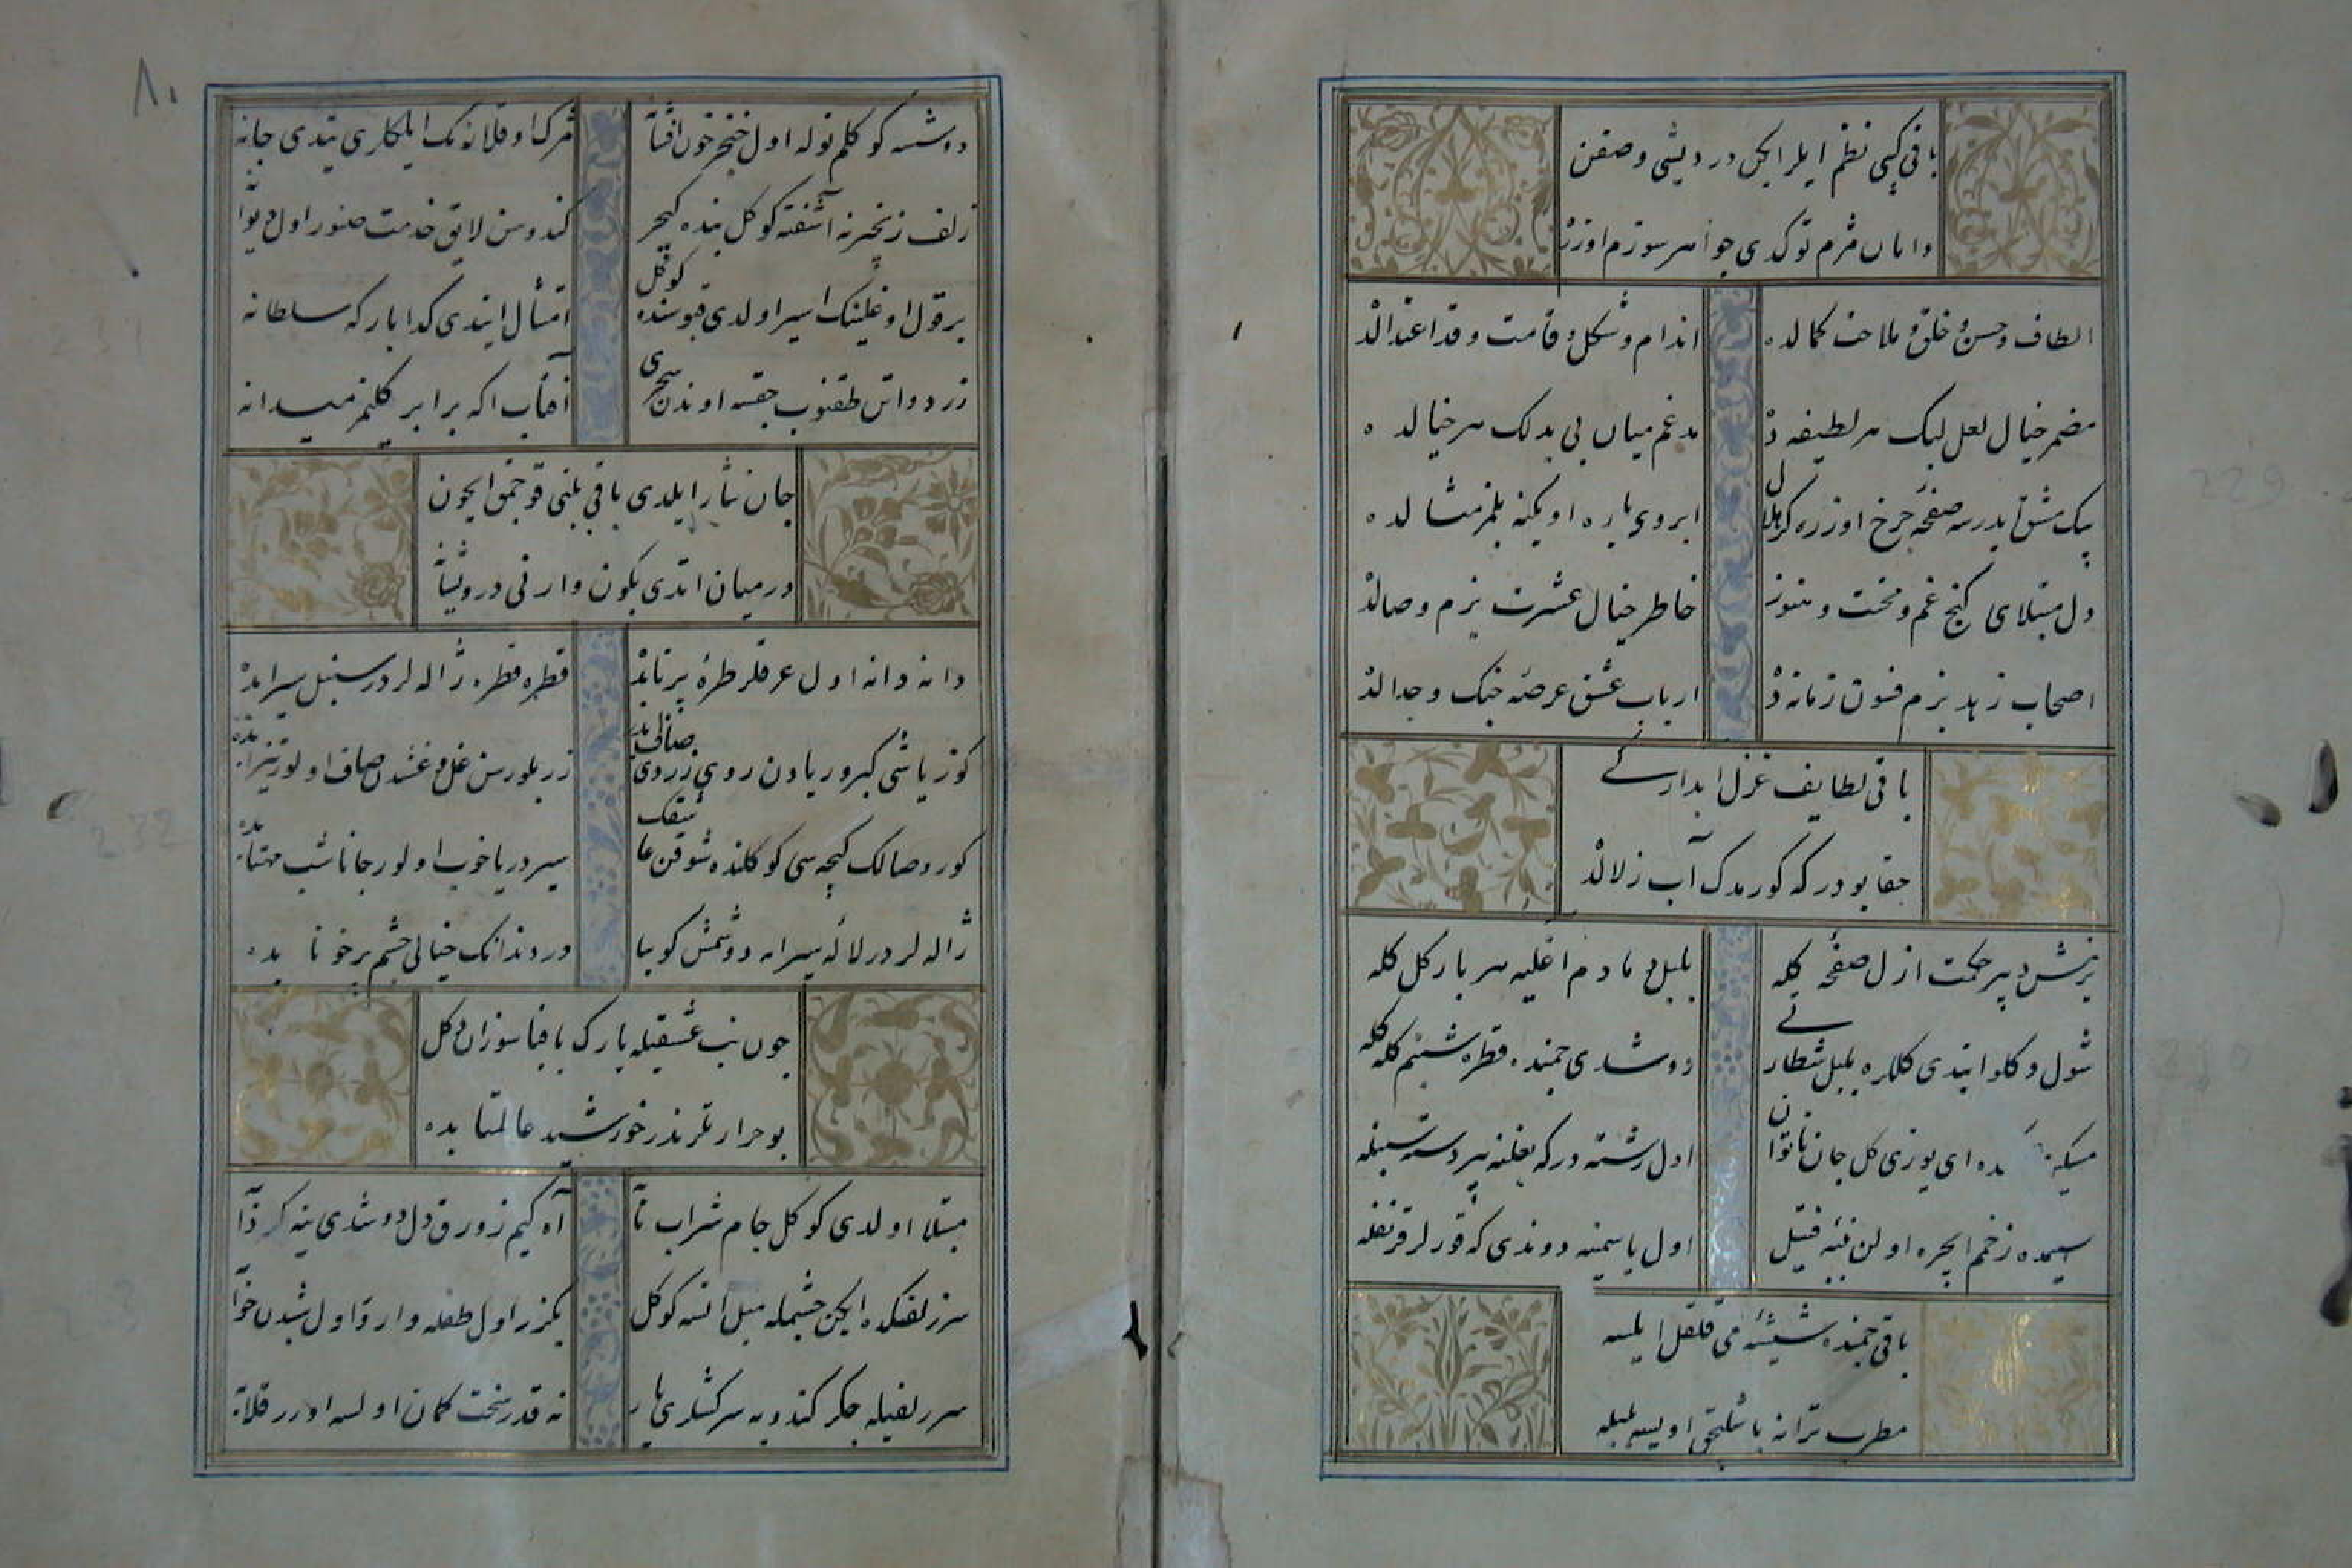 باقی کبی نظم ایلر ایکن در دیشی وصفن
داماں مژم طولدی جواهر سوزم اوزره
الطاف و حسن و خلق و ملاحت کمالده
اندام و شکل و قامت و قد اعتدالده
مضمر خیال لعل لبک هر لطیفه ده
مدغم میاں بی بدلک هر خیالده
بیک مشق ایدرسه صفحه چرخ اوزره کر هلال
ابروی یاره اویکنه بلمز مثالده
دل مبتلای کنج غم و محنت و هنوز
خاطر خیال عشرت بزم وصالده
اصحاب زهد بزم فسون زمانه ده
ارباب عشق عرصه جنک و جدالده
باقی لطایف غزل ابدارکے
حقا بودر که کورمدک آب زلالده
یزمش دبیر حکمت ازل صفحه کله
بلبل دمادم اغلیه هر بار کل کله
شول دکلو ایتدی کللره بلبل نثار نے
دوشدی چمنده قطره شبنم کله کله
ده ای یوزی کل جان ناتوان
اول رشته در که بغلنه بر دسته سنبله
سینمده زخم ایچره اولن پنبه فتیل
اول یاسمینه دوندی که قورلر قرنفله
باقی چمنده شیشهٔ می قلقل ایلسه
مطرب ترانه باشلیجق اویسه بلبله
دوشسه کوکلم نوله اول خنجر خون افشانه
مرک اوقلانه نک ایلکلری یتدی جانه
زلف زنجیرنه آشفته کوکل بنده کچر
کندوسن لایق خدمت صنور اول دیوانه
بر قول اوغلینک اسیر اولدی قپوسنده کوکل
امتثال ایتدی کدا بارکه سلطانه
زردواتی طقنوب چقسه اوندن سحری
آفتاب اکه برابر کلیمز میدانه
جان نثار ایلدی باقی بلنی قوچمق ایچون
درمیان اتدی بکون وارنی درویشانه
دانه دانه اول عرقلر طرهٔ پرتابده
قطره قطره ژاله لردر سنبل سیرابده
کوز یاشی کبرو ریادن روی زردی صافیدر
زر بلورسن غل و غشدن صاف اولور تیزابده
کور وصالک کیجه سی کوکلنده شوقن عاشقک
سیر دریا خوب اولور جانا شب مهتابده
ژاله لردر لالهٔ سیرابه دوشمش کوییا
در دندانک خیالی چشم پر خونابده
چون تب عشقیله یارک باقیا سوزان دکل
بو حرارتلر ندر خورشید عالمتابده
مبتلا اولدی کوکل جام شراب نابه
آه کیم زورق دل دوشدی ینه کردابه
سر زلفکده ایکن چشمله میل اتسه کوکل
بکزر اول طفله وار واول شبدن خوابه
سر زلفیله چکر کندویه سرکشلری یار
نه قدر سخت کمان اولسه اورر قلابه